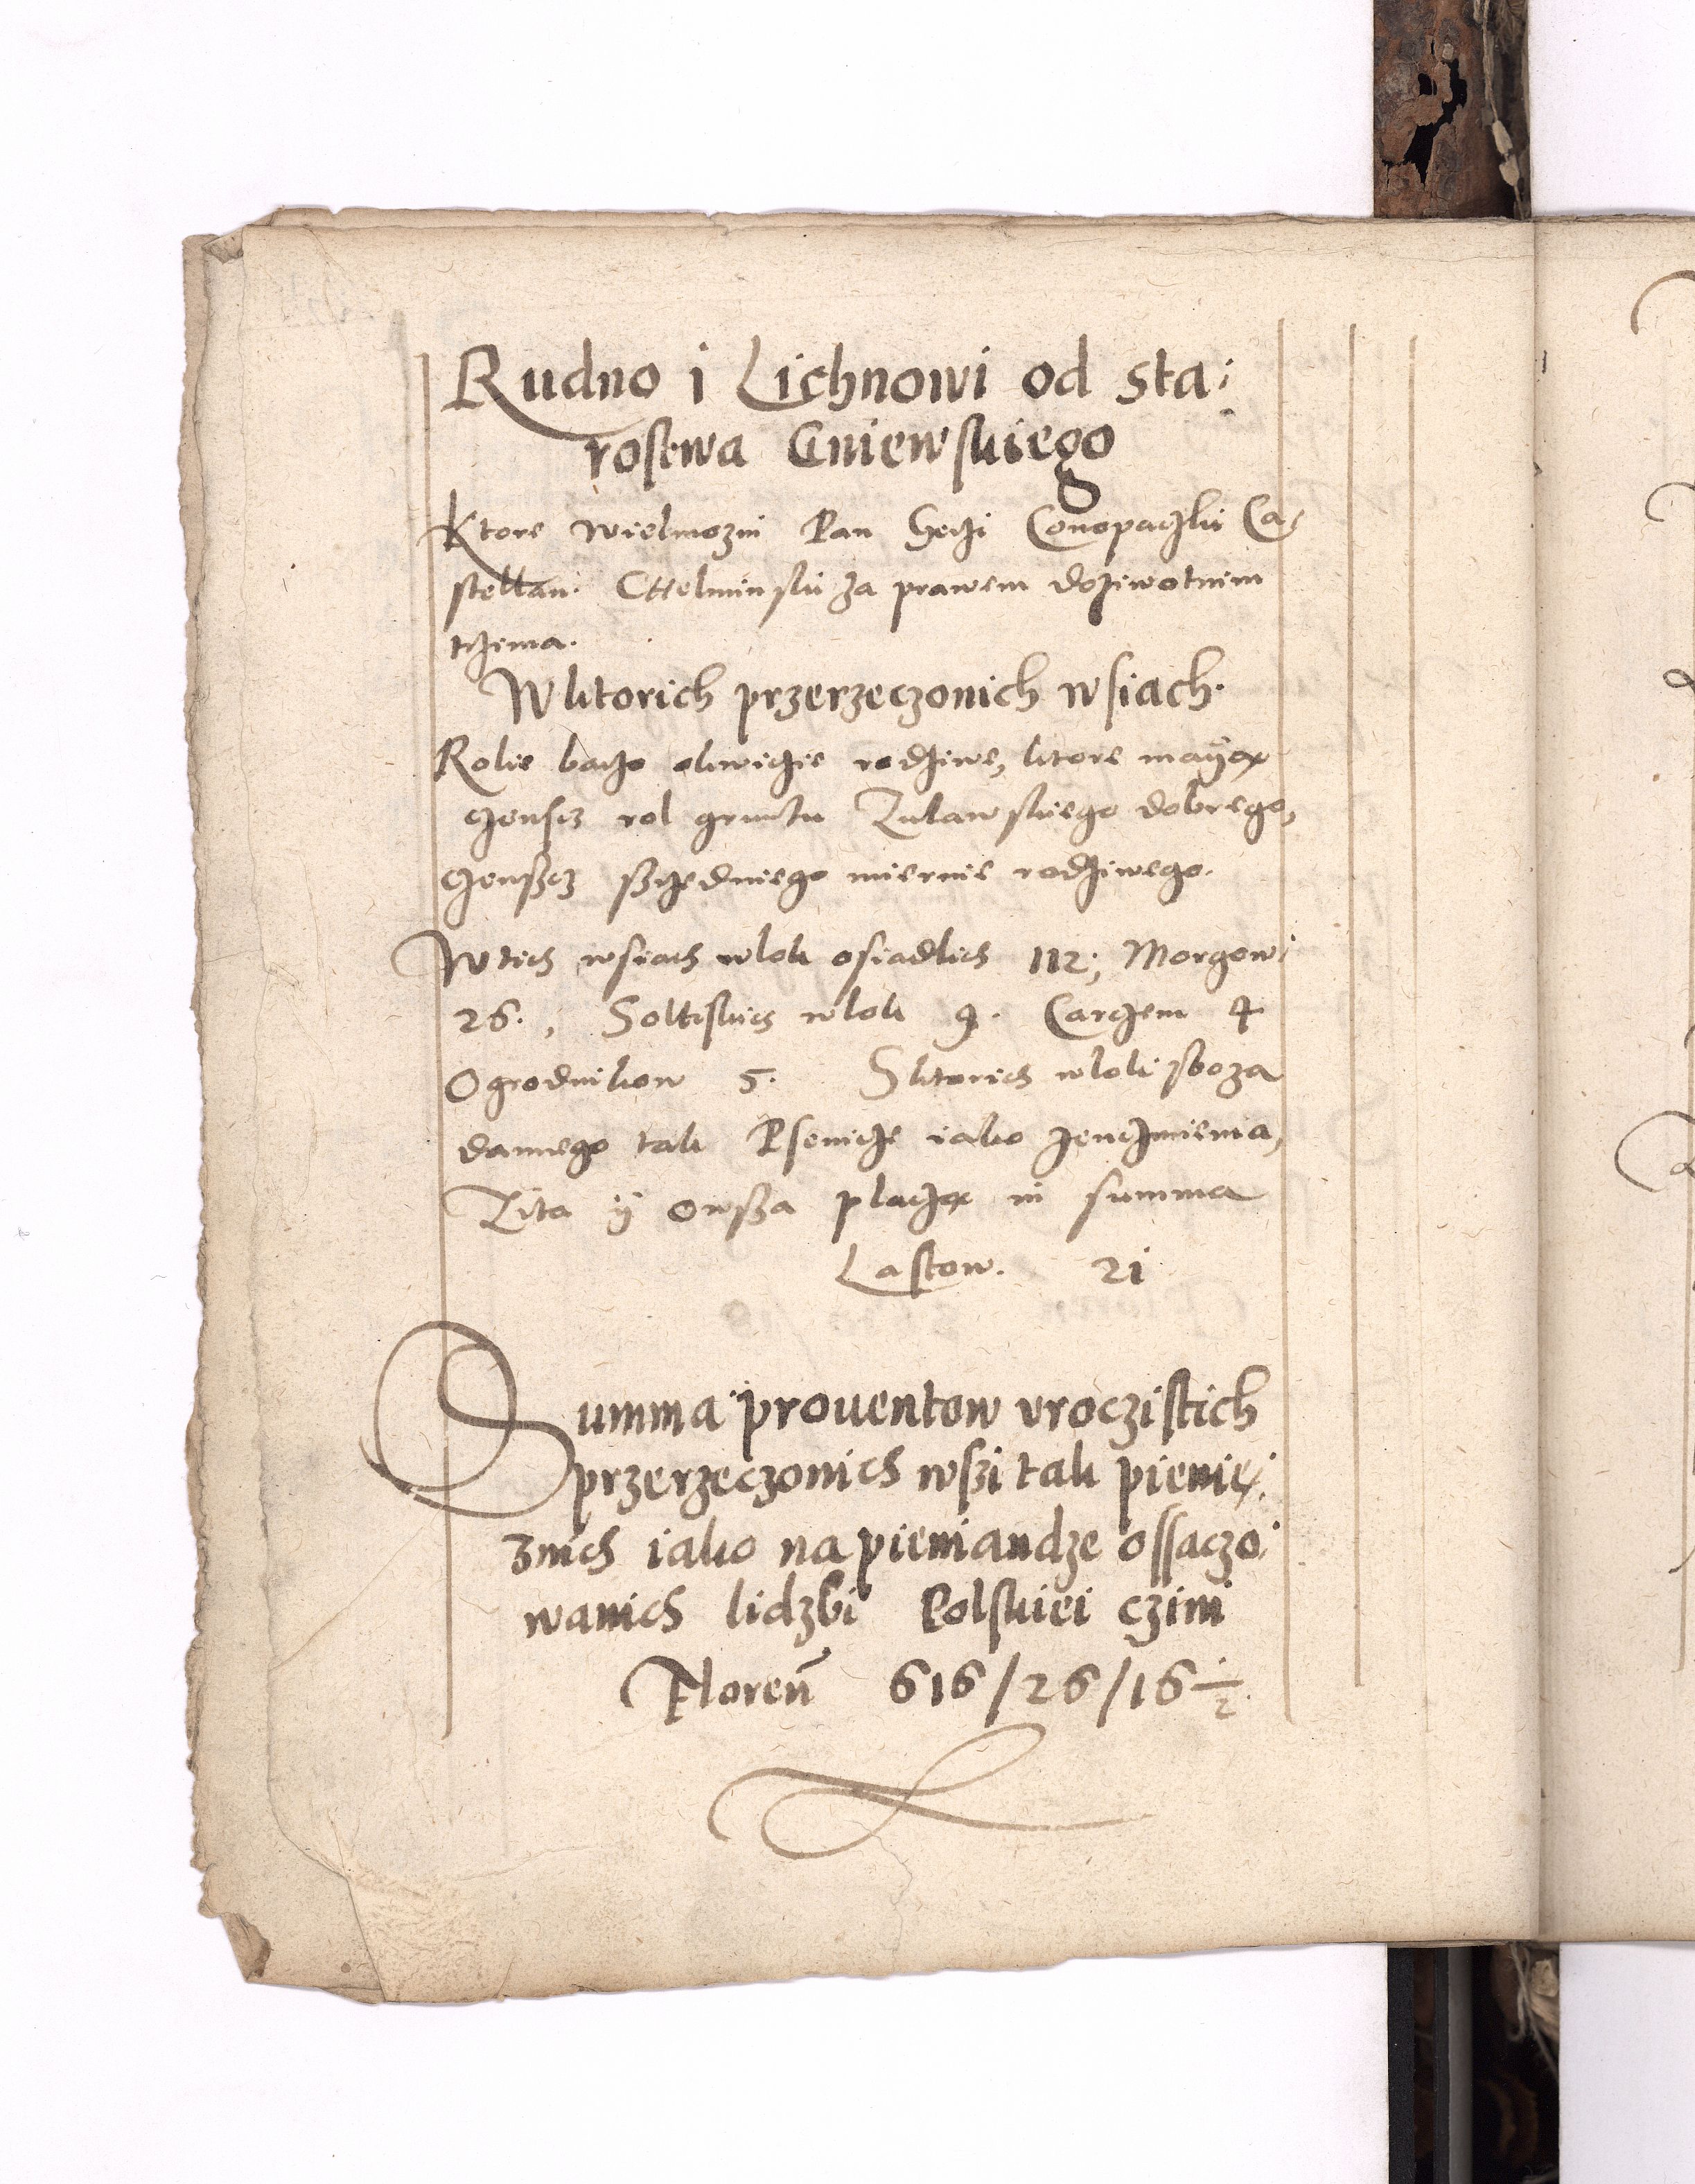 Rudno i Lichnowi od sta:
rostwa Gniewskiego
Ktore wielmozni Pan Conopaczki Ca-
stellan. Chelminski za prawem dozywotnim
trzima.
W ktorich przerzeczonich wsiach.
Rolie baczo rodziwe, ktore mayą
czenscz rol gruntu Zulawskiego dobrego,
czenszcz szrzedniego miernie rodziwego.
W tich wsiach wlok osiadlich 112; Morgow
26., Soltiskich wlok 9. Carczem 4
Ogrodnikow 5. S ktorich wlok sboza
dannego tak Psenicze iako Jenczmienia,
Zita ÿ owsza placzą in summa
Lastow. 21
Summa prouentow vroczistich
przerzeczonich wszi tak pienię:
znich iako na pieniandze ossaczo:
wanich lidzbi Polskiei czini
Floren̄ 616/26/16 1/2.